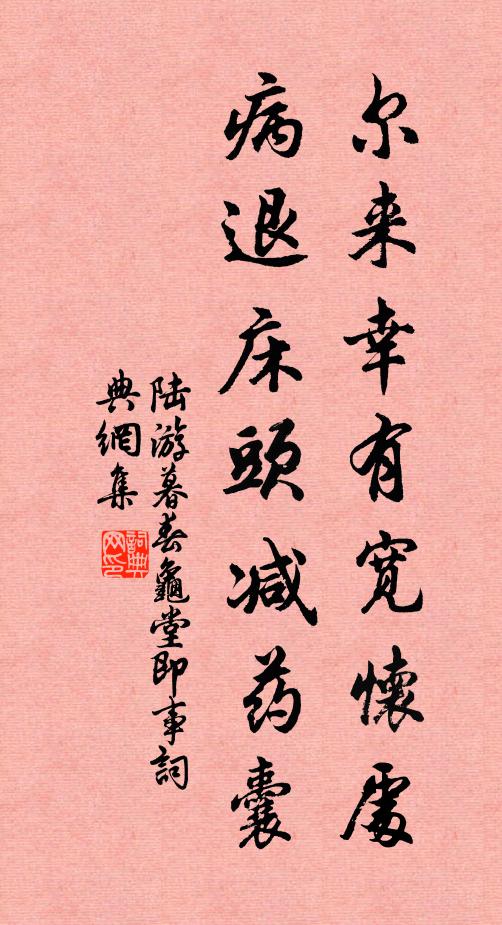 尔来幸有宽懷處
病退床頭减药囊
陆游暮春龜堂即事詞
典網集
詞典
网印